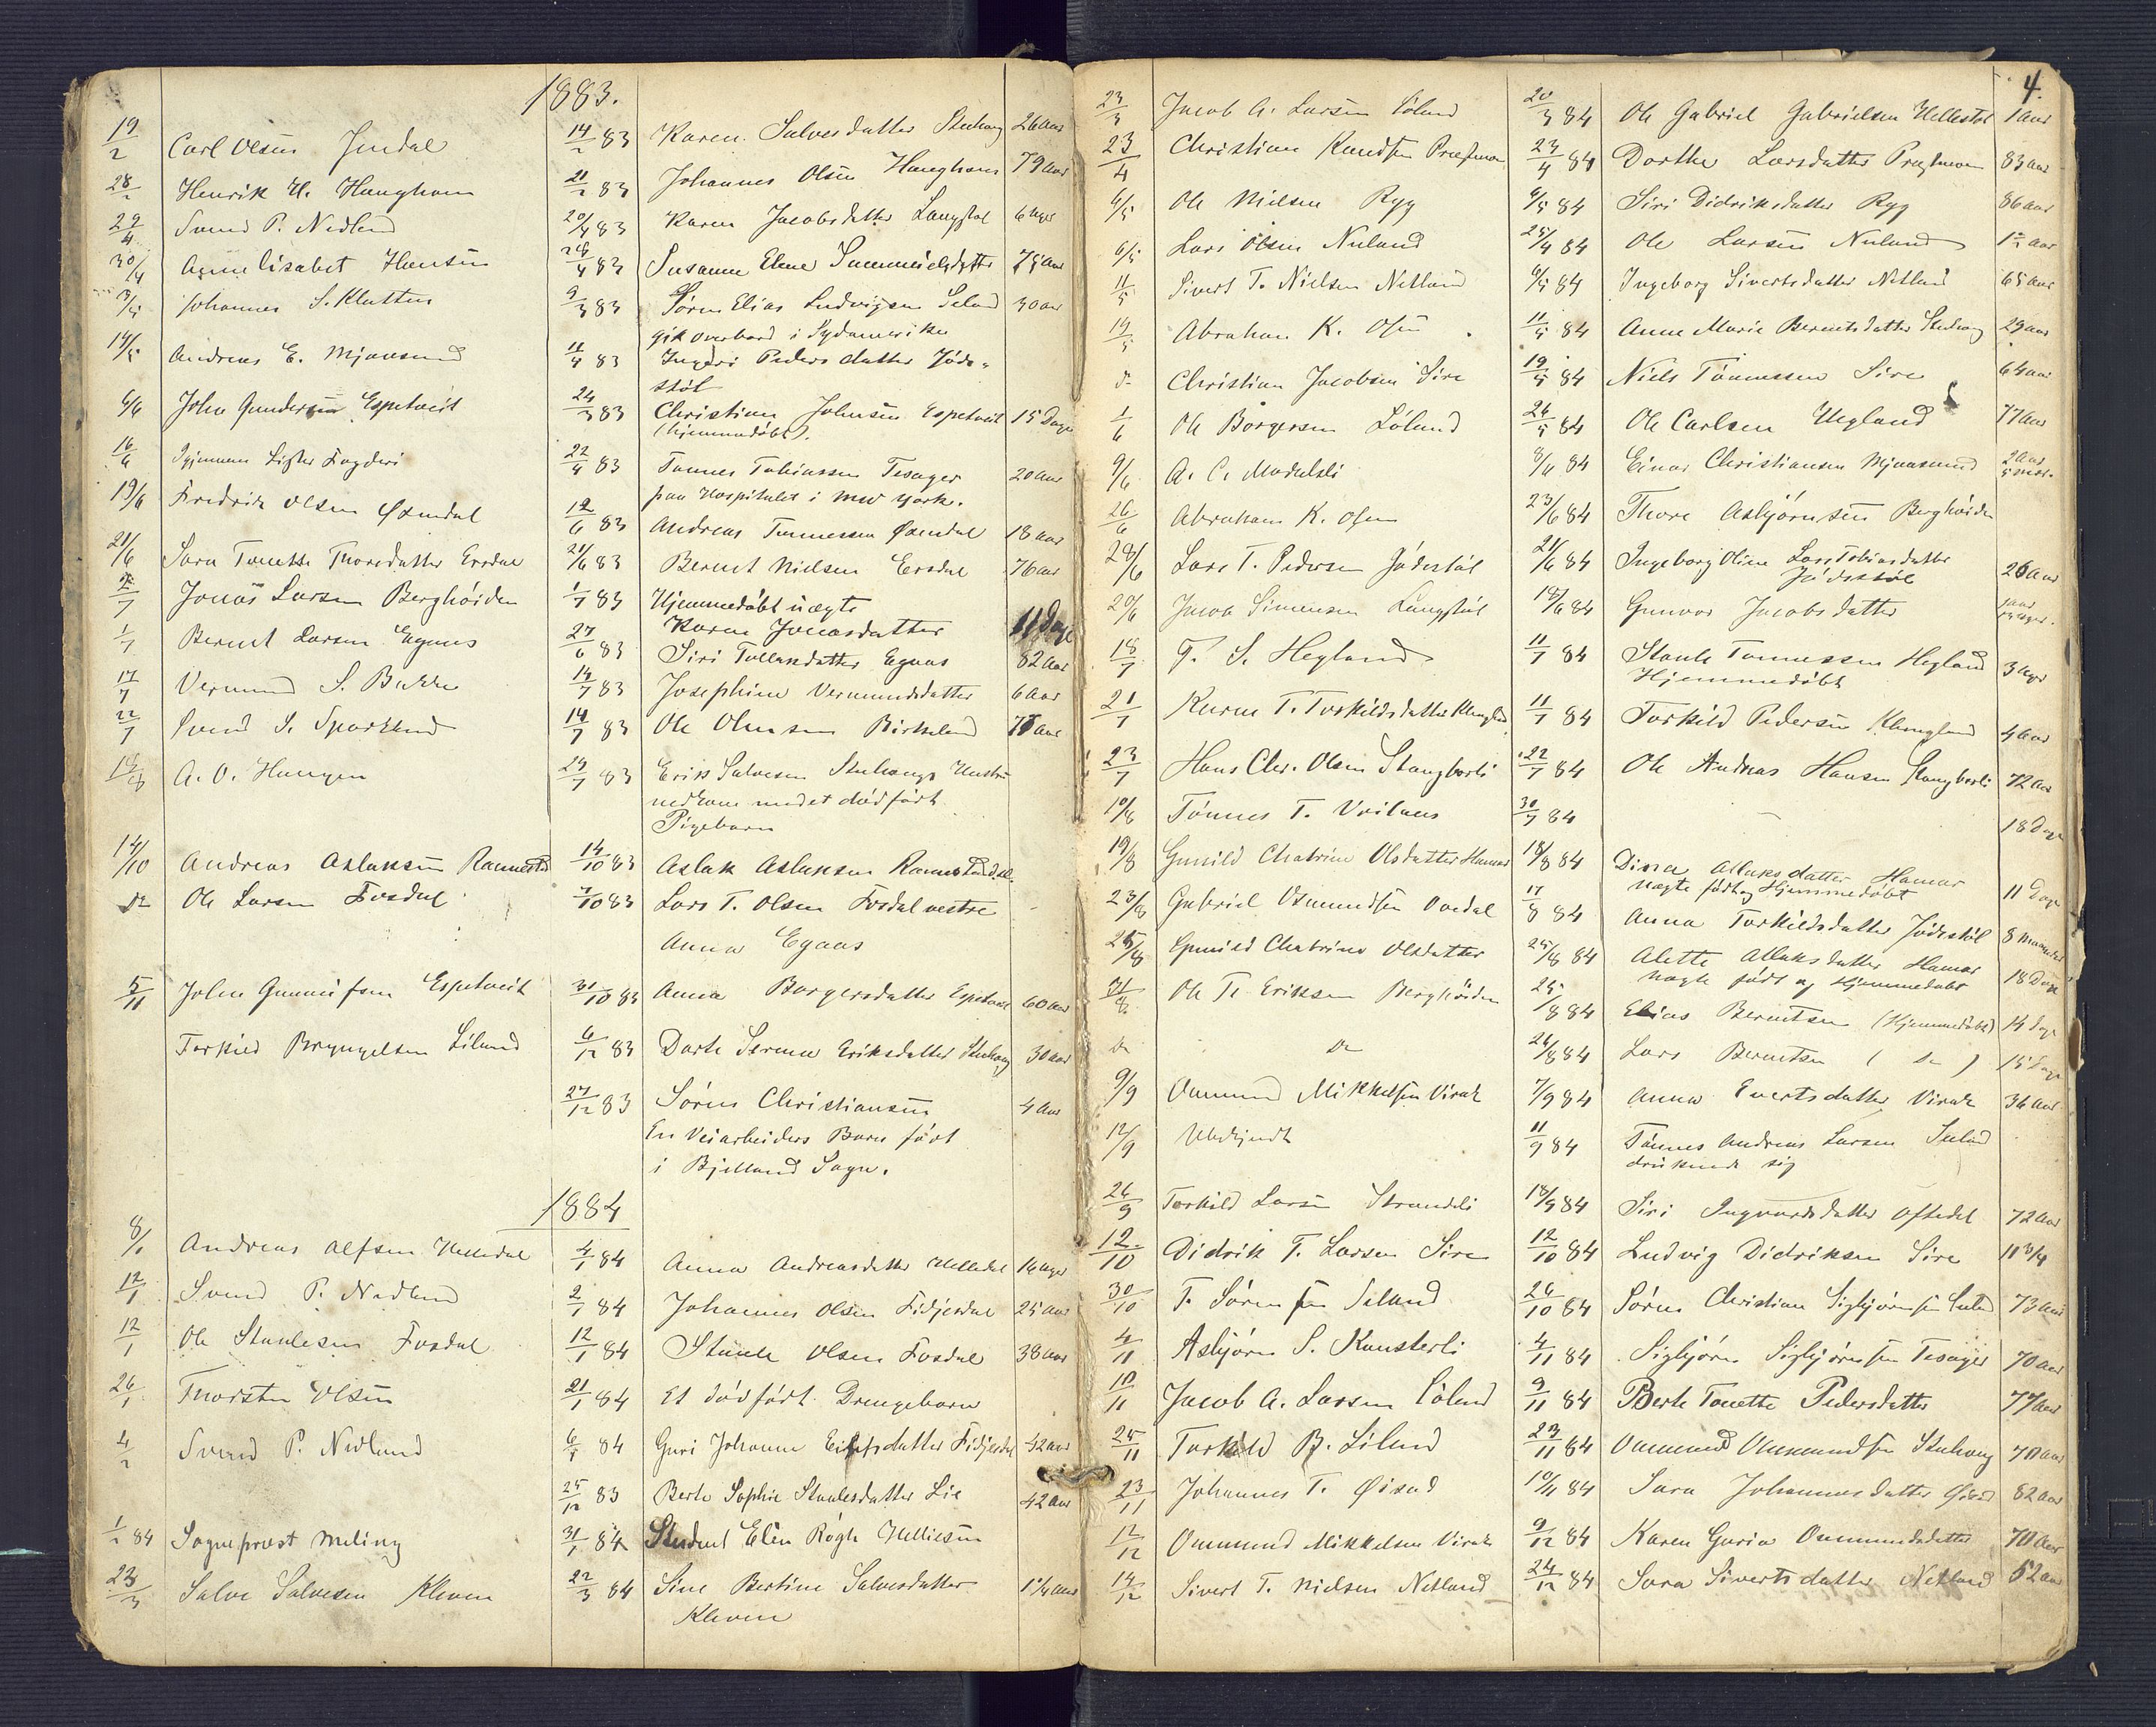 1883.
19/2 Carl Olsen 14/2 83 Karen Salvesdatter Stuhaug 26 Aar
28/2 Henrik H. Haugham 21/2 83 Johannes Olsen Haugham 79 Aar
29/4 Svend P. Nedland 20/4 83 Karen Jacobsdatter Langstøl 6 Uger
30/4 Anne Elisabet Hansen 24/4 83 Susanne Elene 75 Aar
3/5 Johannes S. Kletten 9/3 83 Søren Elias Ludvigsen Seland 30 Aar
gik overbord i Sydamerika
14/5 Andreas E. Mjaasund 11/4 83 Ingeri Pedersdatter Jøde-
støl
6/6 John Gundersen Espetveit 24/3 83 Christian Johnsen Espetveit 15 Dage
(hjemmedøbt).
16/6 Igjennem Lister Fogderi 22/4 83 Tønnes Tobiassen Tesager 20 Aar
paa Hospitalet i New York.
19/6 Fredrik Olsen Øxendal 12/6 83 Andreas Tønnessen Øxendal 18 Aar
21/6 Sara Tonette Thoresdatter Ersdal 21/6 83 Bernt Nielsen Ersdal 76 Aar
2/7 Jonas Larsen Berghøiden 1/7 83 Hjemmedøbt uægte
Karen Jonasdatter 11 Dage
1/7 Bernt Larsen Egaas 27/6 83 Siri Tollaksdatter Egaas 82 Aar
17/7 Vermund S. Bakke 14/7 83 Josephine Vermundsdatter 6 Aar
22/7 Svend S. Sparkland 14/7 83 Ole Olausen Birkeland 75 Aar
A. O. Haugen 29/7 83 Erik Salvesen Stuhaugs Hustru
nedkom med et dødfødt
Pigebarn
14/10 Andreas Aslaksen Rannestad 14/10 83 Aslak Aslaksen
do Ole Larsen Fosdal 7/10 83 Lars T. Olsen Fosdal vestre
Anna Egaas
5/11 John Gunnufsen Espetveit 31/10 83 Anna Borgersdatter Espetveit 60 Aar
Torkild Bryngelsen Liland 6/12 83 Dorte Serene Eriksdatter Stuhaug 30 Aar
27/12 83 Søren Christiansen 4 Aar
En Veiarbeiders Barn født
i Bjelland Sogn.
1884
8/1 Andreas Alfsen Helledal 4/1 84 Anna Andreasdatter Helledal 16 Uger
12/1 Svend P. Nedland 2/1 84 Johannes Olsen Fidjedal 25 Aar
12/1 Ole Staalesen Fosdal 12/1 84 Staale Olsen Fosdal 38 Aar
26/1 Thorsten Olsen 21/1 84 Et dødfødt Drengebarn
4/2 Svend P. Nedland 84 Guri Johanne Fidjedal 42 Aar
25/12 83 Berte Sophie Staalesdatter Lie 42 Aar
1/2 84 Sogneprest Meling 31/1 84 Student
23/3 Salve Salvesen Kleven 22/3 84 Sine Bertine Salvesdatter 1 1/4 Aar
Kleven
4.
23/3 Jacob A. Larsen Løland 20/3 84 Ole Gabriel Gabrielsen Hellestøl 1 Aar
23/4 Christian Knudsen 23/4 84 Dorthe Larsdatter 83 Aar
6/5 Ole Nielsen Ryg 6/5 84 Siri Didriksdatter Ryg 86 Aar
6/5 Lars Olsen Nuland 25/4 84 Ole Larsen Nuland 1 1/2 Aar
11/5 Sivert T. Nielsen Netland 6/5 84 Ingeborg Sivertsdatter Netland 65 Aar
19/5 Abraham K. Osen 11/5 84 Anne Marie Berentsdatter Stuhaug 29 Aar
do Christian Jacobsen Sire 19/5 84 Niels Tønnessen Sire 64 Aar
1/6 Ole Borgersen Løland 26/5 84 Ole Carlsen Hegland 77 Aar
9/6 A. C. Modalsli 8/6 84 Einar Christiansen Mjaasund 2 Aar
26/6 Abraham K. Osen 23/6 84 Thore Asbjørnsen Berghøiden
28/6 Lars T. Pedersen Jødestøl 21/6 84 Ingeborg Oline Tobiasdatter
Jødestøl 26 Aar
20/6 Jacob Simensen Langstøl 18/6 84 Gunvor Jacobsdatter
18/7 T. S. Hegland 11/7 84 Staale Tønnessen Hegland 3 Uger
Hjemmedøbt
21/7 Karen T. Torkildsdatter Klungland 11/7 84 Torkild Pedersen Klungland 4 Aar
23/7 Hans Chr. Olsen Stangborli 22/7 84 Ole Andreas Hansen Stangborli 72 Aar
10/8 Tønnes T. 30/7 84 18 Dage
19/8 Gunild Chatrine Olsdatter Hamar 18/8 84 Dina Allaksdatter Hamar
uægte født og Hjemmedøbt 11 Dage
23/8 Gabriel Osmundsen Ovedal 17/8 84 Anna Torkildsdatter Jødestøl 8 Maaneder
25/8 Gunild Chatrine Olsdatter 25/8 84 Alette Allaksdatter Hamar
uægte født og Hjemmedøbt 18 Dage
31/8 Ole T. Eriksen Berghøiden 25/8 84 Elias Berentsen (Hjemmedøbt) 14 Dage
do do 26/8 84 Lars Berentsen ( do ) 15 Dage
9/9 Ommund Mikkelsen Virak 7/9 84 Anna Evertsdatter Virak 36 Aar
12/9 Ubekjendt 11/9 84 Tønnes Andreas Larsen Seland
druknede sig
26/9 Torkild Larsen Strandeli 18/9 84 Siri Ingvardsdatter Oftedal 72 Aar
12/10 Didrik T. Larsen Sire 12/10 84 Ludvig Didriksen Sire 11 3/4
30/10 T. Sørensen Seland 26/10 84 Søren Christian Sigbjørnsen Seland 73 Aar
4/11 Asbjørn S. Kunsterli 4/11 84 Sigbjørn Sigbjørnsen Tesager 70 Aar
10/11 Jacob A. Larsen Løland 9/11 84 Berte Tonette Pedersdatter 77 Aar
25/11 Torkild B. Liland 23/11 84 Ommund Ommundsen Stuhaug 70 Aar
23/11 Johannes T. Øisad 10/11 84 Sara Johannesdatter Øisad 82 Aar
12/12 Ommund Mikkelsen Virak 9/12 84 Karen Guria Ommundsdatter 70 Aar
14/12 Sivert T. Nielsen Netland 24/12 84 Sara Sivertsdatter Netland 52 Aar